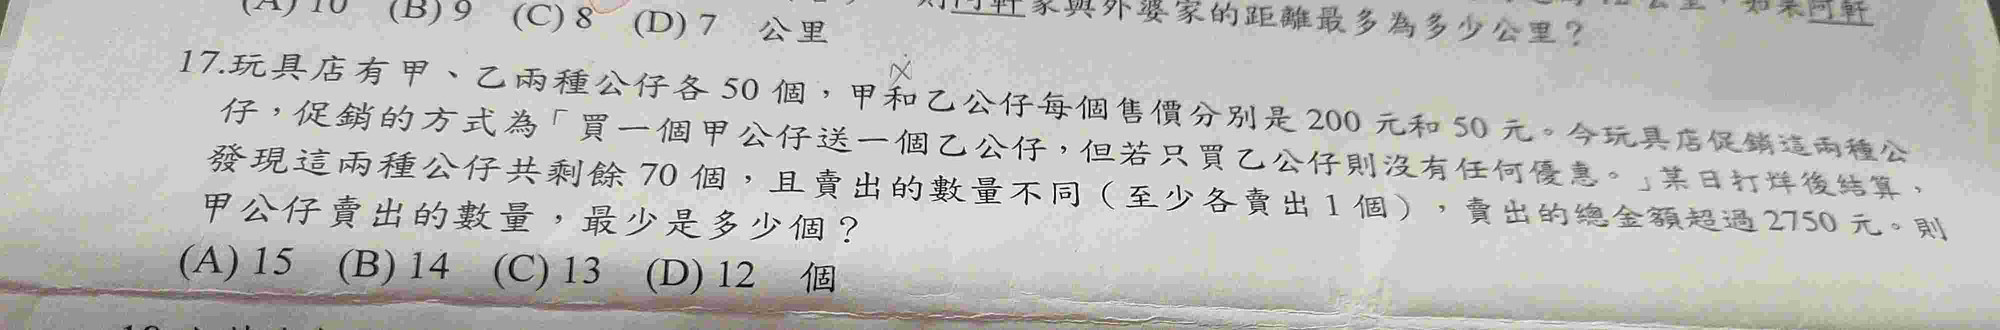 (A) 10 (B) 9 (C) 8 (D) 7 公里
家與外婆家的距離最多為多少公里？
17.玩具店有甲、乙兩種公仔各 50 個，甲和乙公仔每個售價分別是 200 元和 50 元。今玩具店促銷這兩種公
仔，促銷的方式為「買一個甲公仔送一個乙公仔，但若只買乙公仔則沒有任何優惠。」某日打烊後結算，
發現這兩種公仔共剩餘 70 個，且賣出的數量不同（至少各賣出 1 個），賣出的總金額超過 2750 元。則
甲公仔賣出的數量，最少是多少個？
(A) 15 (B) 14 (C) 13 (D) 12 個